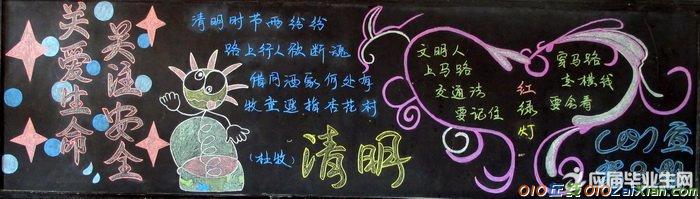 关爱生命
关注安全
清明时节雨纷纷
路上行人欲断魂
借问酒家何处有
牧童遥指杏花村
(杜牧)
清明
文明人
上马路
交通法
要记住
红绿灯
穿马路
走横线
要会看
应届毕业生网
010ZaiXian.com